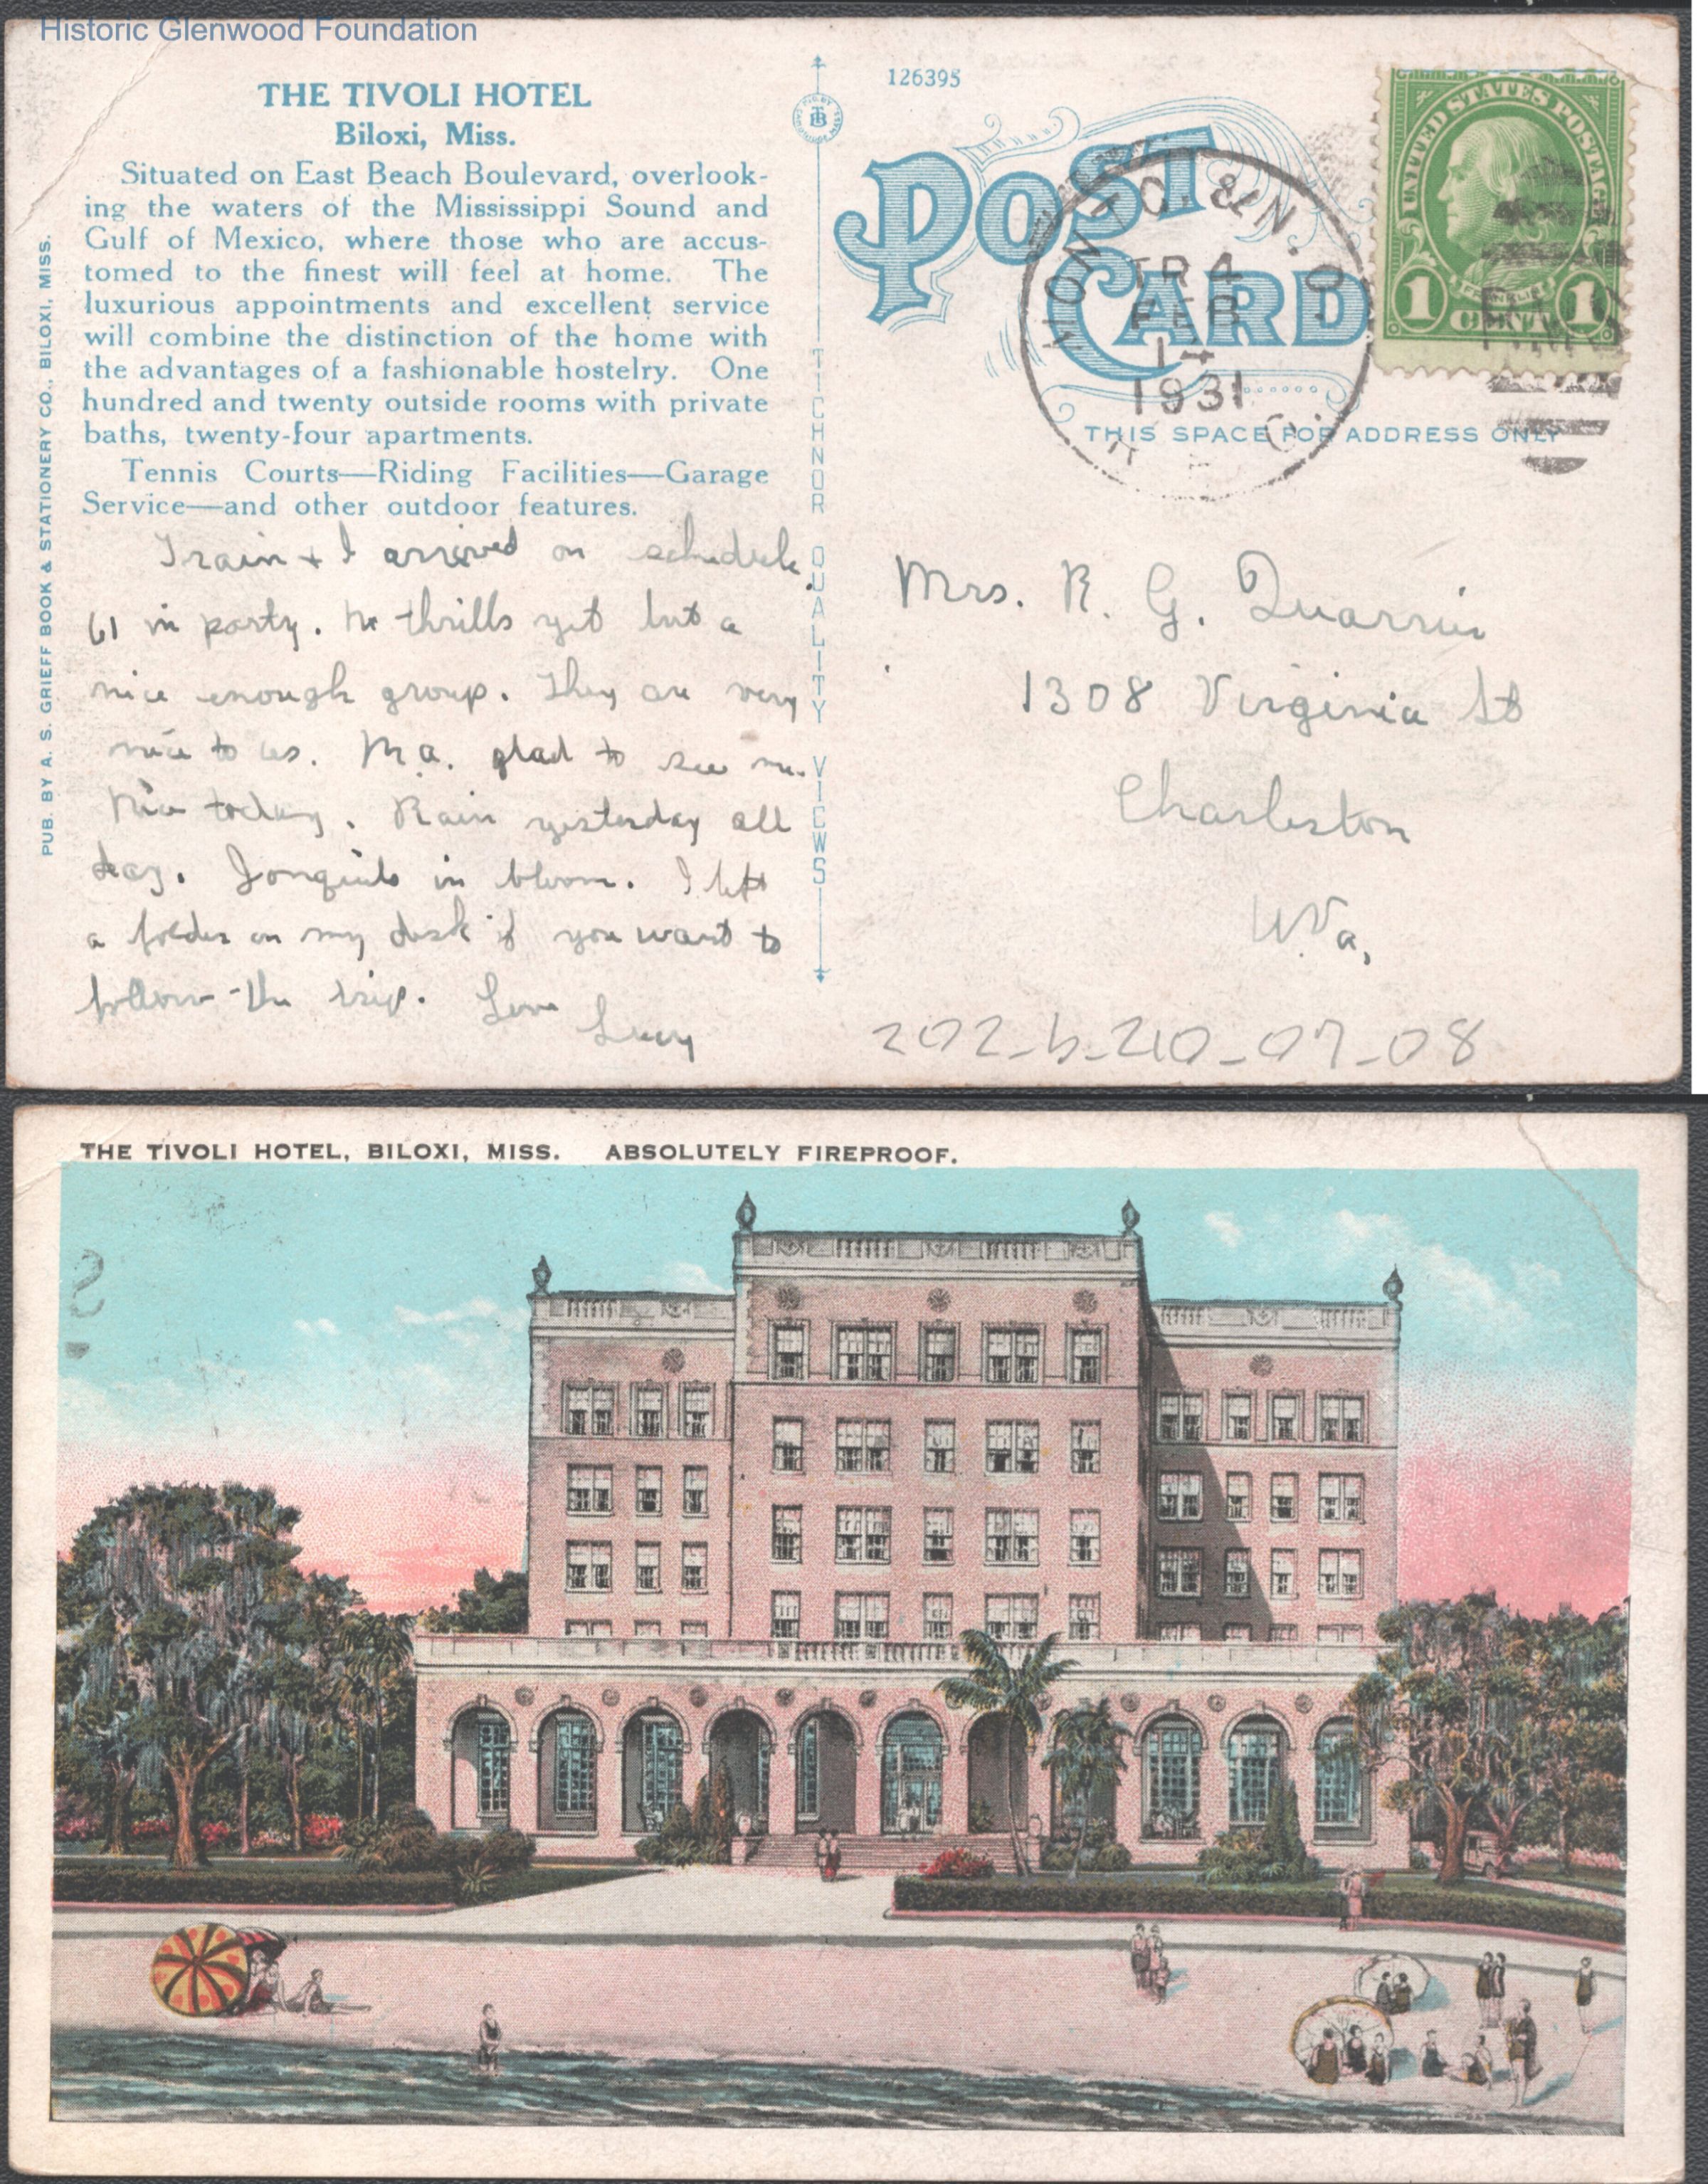 Historic Glenwood Foundation
THE TIVOLI HOTEL
Biloxi, Miss.
Situated on East Beach Boulevard, overlook-
ing the waters of the Mississippi Sound and
Gulf of Mexico, where those who are accus-
tomed to the finest will feel at home. The
luxurious appointments and excellent service
will combine the distinction of the home with
the advantages of a fashionable hostelry. One
hundred and twenty outside rooms with private
baths, twenty-four apartments.
Tennis Courts—Riding Facilities—Garage
Service—and other outdoor features.
Train + I arrived on schedule.
61 in party. No thrills yet but a
nice enough group. They are very
nice to us. M.a. glad to see me.
Nice today. Rain yesterday all
day. Jonquils in bloom. I left
a folder on my desk if you want to
follow the trip. Love
Lucy
PUB. BY A. S. GRIEFF BOOK & STATIONERY CO., BILOXI, MISS.
TICHNOR QUALITY VIEWS
126395
POST CARD
THIS SPACE FOR ADDRESS ONLY
MONTG. & N.O.
TR 4
FEB
14
1931
UNITED STATES POSTAGE
FRANKLIN
1 CENT 1
Mrs. R. G. Quarrier
1308 Virginia St
Charleston
W.Va,
202_b_210_07_08
THE TIVOLI HOTEL, BILOXI, MISS. ABSOLUTELY FIREPROOF.